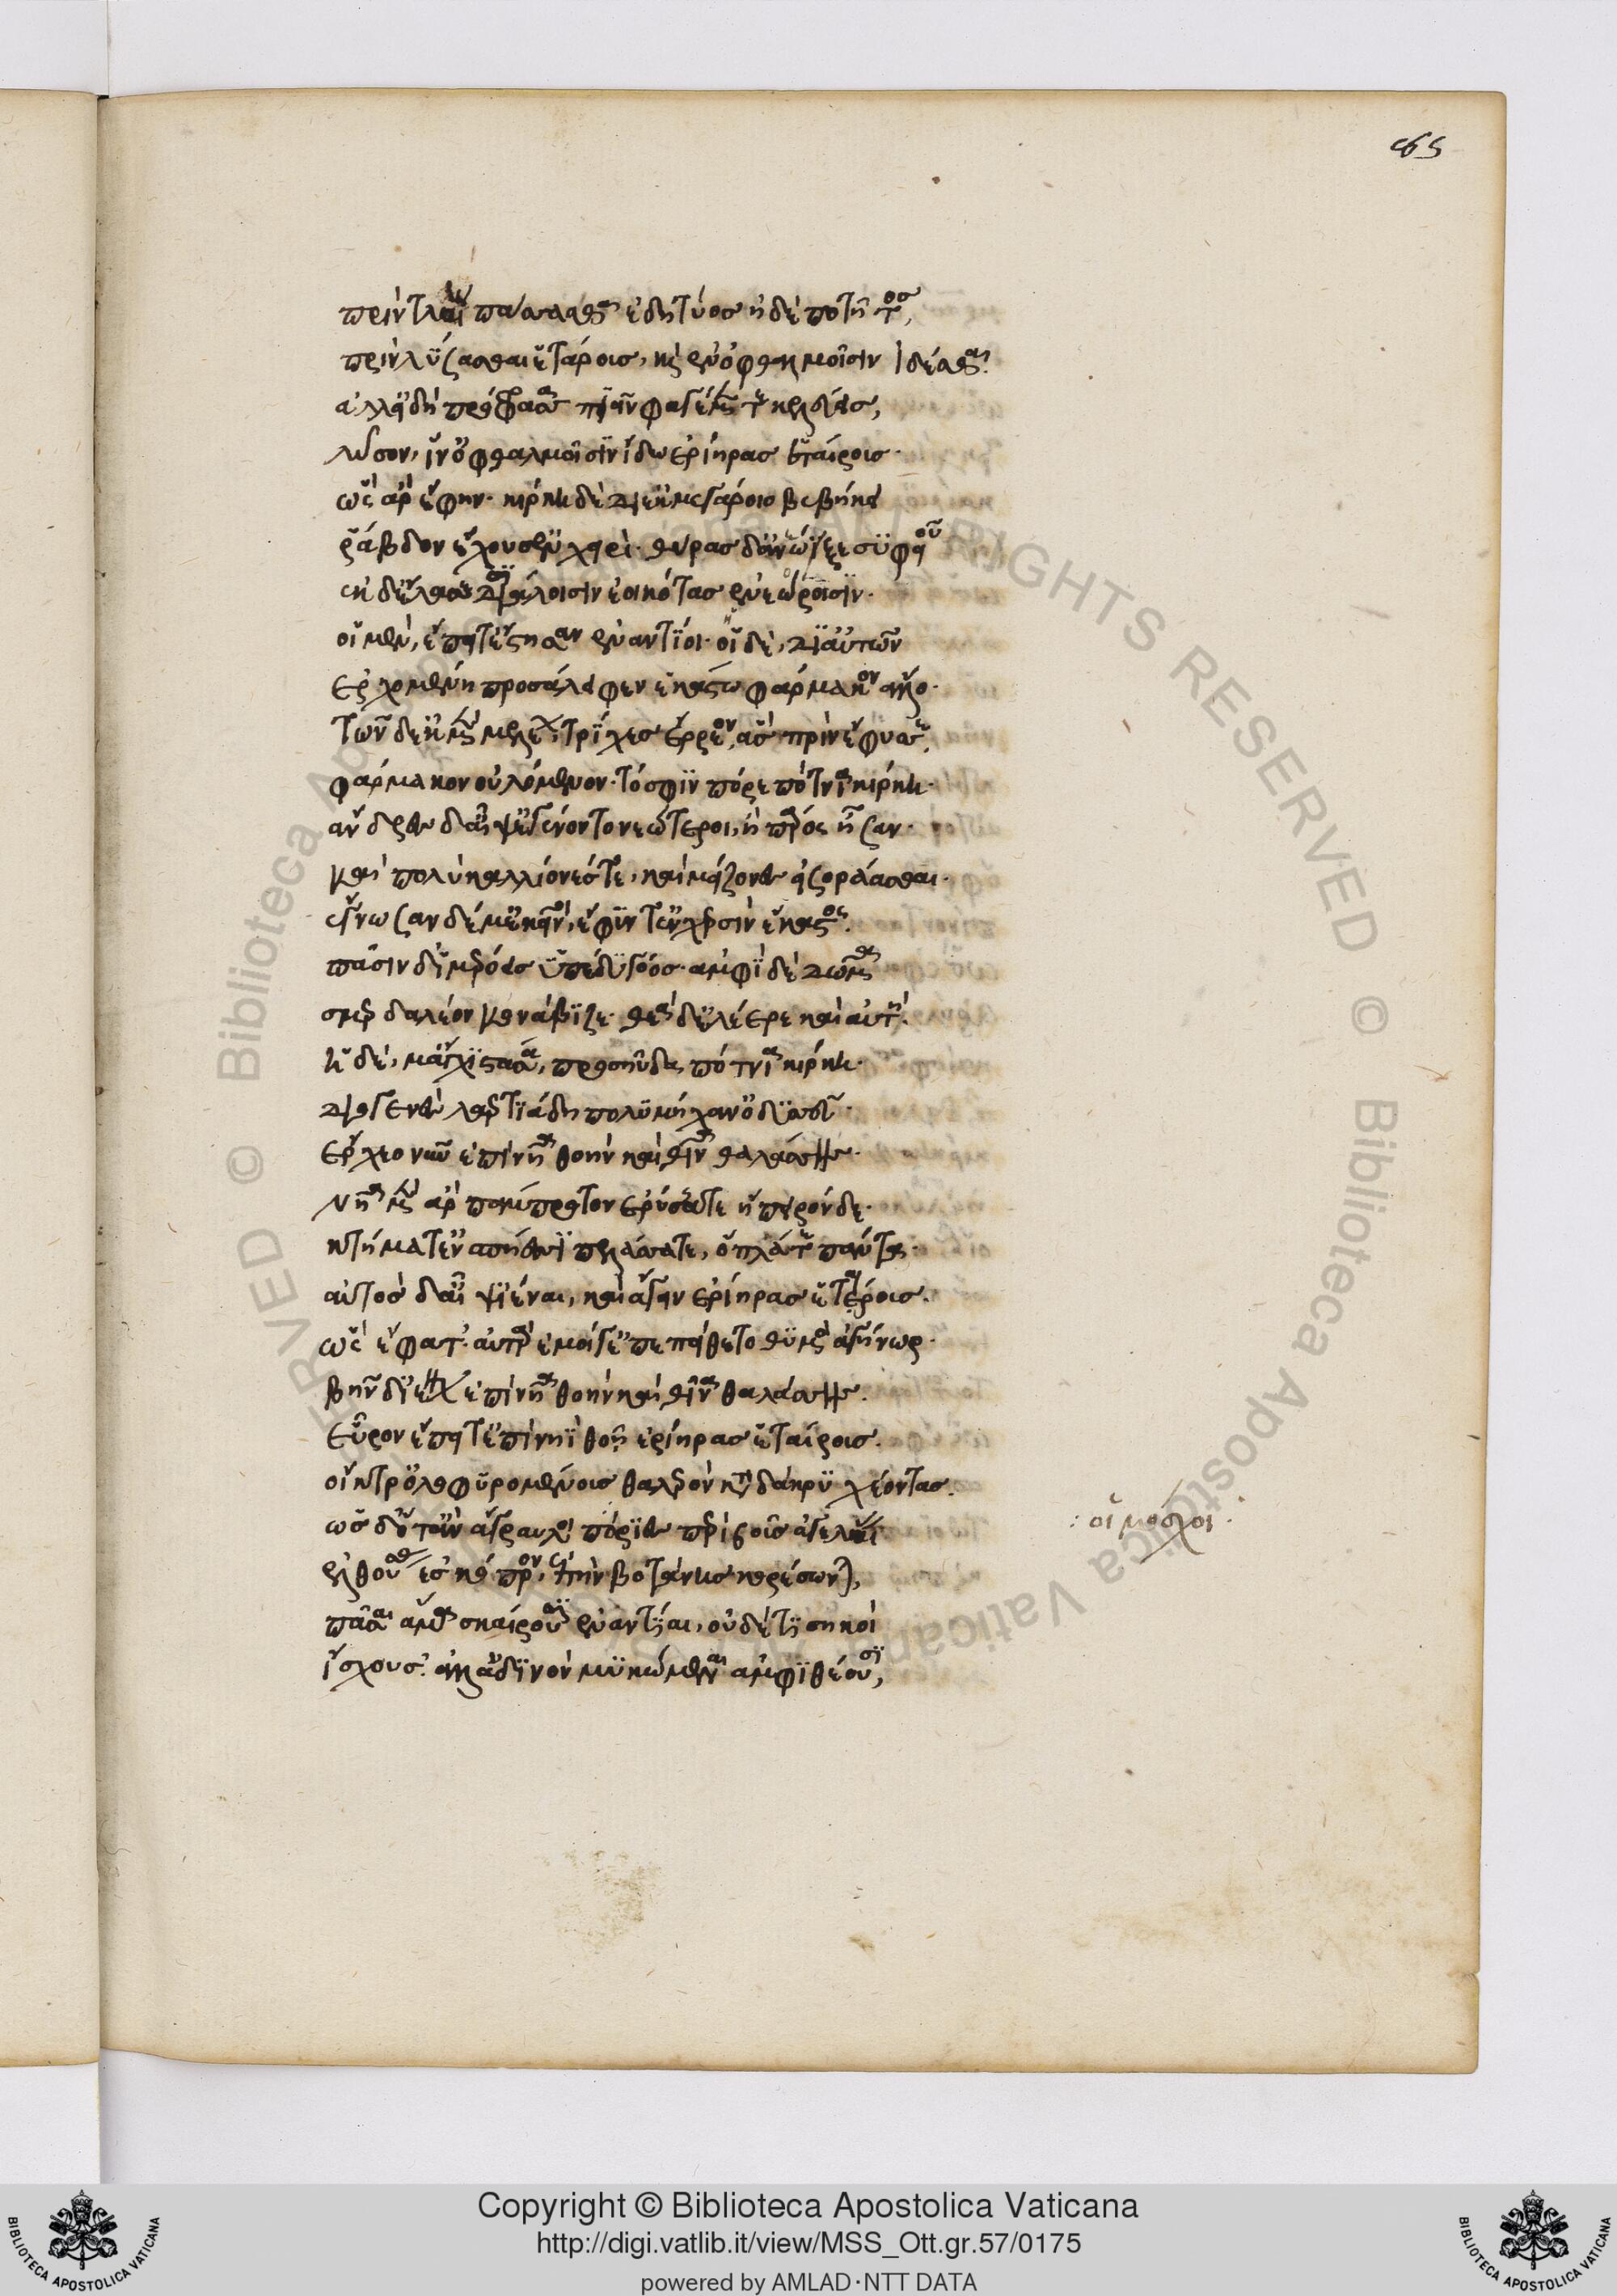 165
πρὶν τλαίη πάσασθαι ἐδητύος ἠδὲ ποτῆτος,
πρὶν λύσασθαι ἑτάρους, καὶ ἐν ὀφθαλμοῖσιν ἰδέσθαι.
ἀλλ' εἰ δὴ πρόφρασσα πιεῖν φαγέμεν τε κελεύεις,
λῦσον, ἵν' ὀφθαλμοῖσιν ἴδω ἐρίηρας ἑταίρους.
ὣς ἄρ' ἔφην. κίρκη δὲ διὲκ μεγάροιο βεβήκει
ῥάβδον ἔχουσ' ἐν χειρὶ. θύρας δ' ἀνέῳξε συφειοῦ
ἐκ δ' ἔλασε σιάλοισιν ἐοικότας ἐννεώροισιν.
οἱ μὲν, ἔπειτ' ἔστησαν ἐναντίοι. οἱ δὲ, δι' αὐτῶν
ἐρχομένη προσάλειφεν ἑκάστω φάρμακον ἄλλο.
τῶν δ' ἐκ μὲν μελέων τρίχες ἔρρεον, ἃς πρὶν ἔφυσε,
φάρμακον οὐλόμενον. τό σφιν πόρε πότνια κίρκη.
ἄνδρες δ' αἶψ' ἐγένοντο νεώτεροι, ἢ πάρος ἦσαν.
καὶ πολὺ καλλίονές τε, καὶ μείζονες εἰσοράασθαι.
ἔγνωσαν δέ με κεῖνοι, ἔφυν τ' ἐν χερσὶν ἕκαστος.
πᾶσιν δ' ἱμερόεις ὑπέδυ γόος. ἀμφὶ δὲ δῶμα
σμερδαλέον κονάβιζε. θεὰ δ' ἐλέερε καὶ αὐτὴ.
ἡ δὲ, μ' ἄγχι στᾶσα, προσηύδα πότνια κίρκη.
διογενὲς λαερτιάδη πολυμήχαν' ὀδυσσεῦ.
ἔρχεο νῦν ἐπὶ νῆα θοὴν καὶ θῖνα θαλάσσης.
νῆα μὲν ἂρ πάμπρωτον ἐρύσσατε ἤπειρόνδε.
κτήματα δ' ἐν σπήεσσι πελάσσατε, ὅπλά τε πάντα.
αὐτὸς δ' αἶψ' ἰέναι, καὶ ἄγειν ἐρίηρας ἑταίρους.
ὣς ἔφατ'. αὐτὰρ ἐμοί γ' ἐπεπείθετο θυμὸς ἀγήνωρ.
βῆν δ' ἰέναι ἐπὶ νῆα θοὴν καὶ θῖνα θαλάσσης.
εὗρον ἔπειτ' ἐπὶ νηὶ θοῇ ἐρίηρας ἑταίρους.
οἴκτρ' ὀλοφυρομένους θαλερὸν κατὰ δάκρυ χέοντας.
ὡς δ' ὅταν ἄγραυλοι πόριες περὶ βοῦς ἀγελαίας
ἐλθούσας ἐς κόπρον, ἐπὴν βοτάνης κορέσωνται,
πᾶσαι ἅμα σκαίρουσιν ἐναντίαι, οὐδ' ἔτι σηκοὶ
ἴσχουσ'. ἀλλ' ἁδινὸν μυκώμεναι ἀμφιθέουσι,
: οἱ μόσχοι.
Copyright © Biblioteca Apostolica Vaticana
http://digi.vatlib.it/view/MSS_Ott.gr.57/0175
powered by AMLAD·NTT DATA